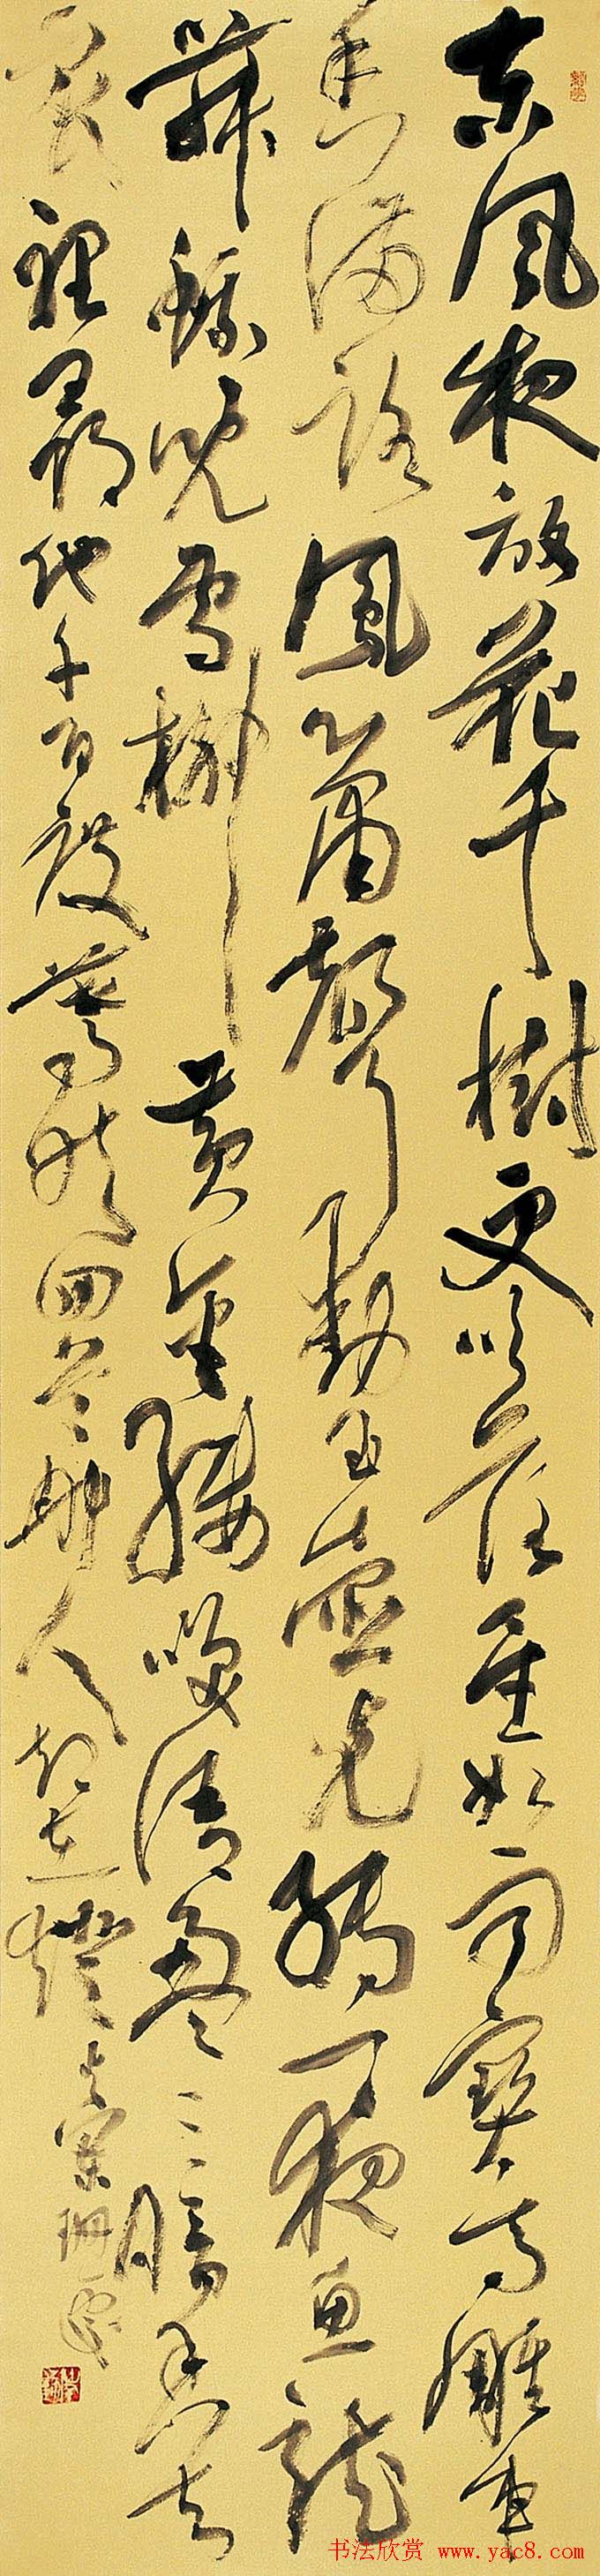 東風夜放花千樹更吹落星如雨寶馬雕車
香滿路鳳簫聲動玉壺光轉一夜魚龍
舞蛾兒雪柳黄金縷咲語盈〻暗香去
衆裡尋他千百度驀然回首那人却在燈火闌珊處
书法欣赏 www.yac8.com